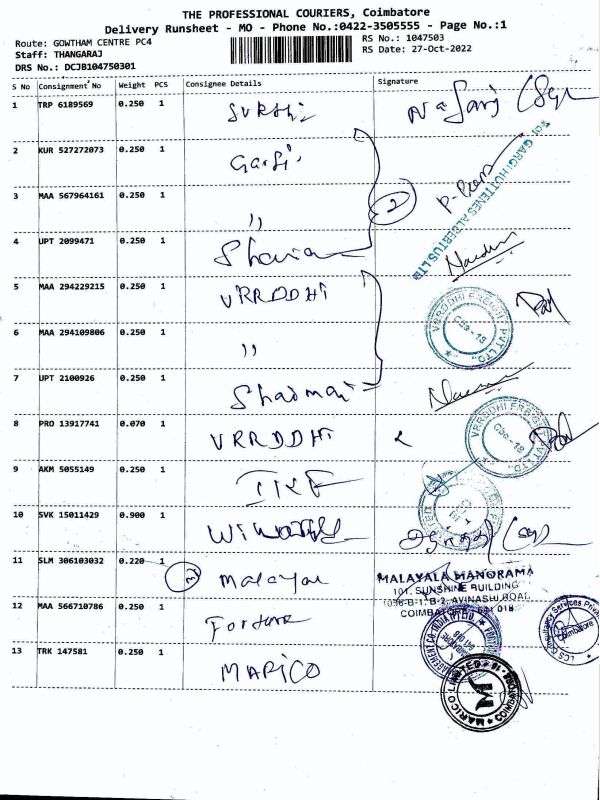 THE PROFESSIONAL COURIERS, Coimbatore
Delivery Runsheet - MO - Phone No.:0422-3505555 - Page No.:1
Route: GOWTHAM CENTRE PC4
RS No.: 1047503
Staff: THANGARAJ
RS Date: 27-Oct-2022
DRS No.: DCJB104750301
S No Consignment No Weight PCS Consignee Details Signature
1 TRP 6189569 0.250 1
2 KUR 527272073 0.250 1 Gargi
For GARGI HUTTENES ALBERTUS LTD
3 MAA 567964161 0.250 1 ,,
2
4 UPT 2099471 0.250 1
5 MAA 294229215 0.250 1 VRRDDHI
VRRDDHI FREIGHT PVT LTD.
Cbe - 18
6 MAA 294109806 0.250 1 ,,
7 UPT 2100926 0.250 1
8 PRO 13917741 0.070 1 VRRDDHI
VRRDDHI FREIGHT PVT LTD.
Cbe - 18
9 AKM 5055149 0.250 1
10 SVK 15011429 0.900 1
11 SLM 306103032 0.220 1 Malayal
MALAYALA MANORAMA
101, SUNSHINE BUILDING
1056-B-1, B-2, AVINASHI ROAD,
COIMBATORE - 641 018
12 MAA 566710786 0.250 1 Fortune
Coimbatore
13 TRK 147581 0.250 1 MARICO
MARICO LIMITED
M
COIMBATORE - 18